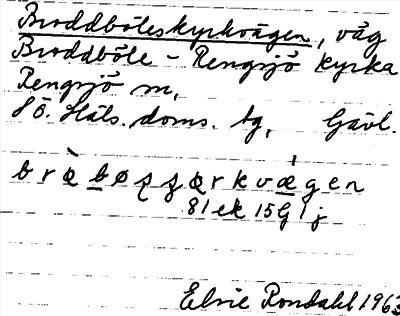 Broddböleskyrkvägen, väg
Broddböle - Rengsjö kyrka
Rengsjö sn,
Sö. Häls. doms. tg, Gävl.
81 ek 15 G l j
Elvie Rondahl 1963